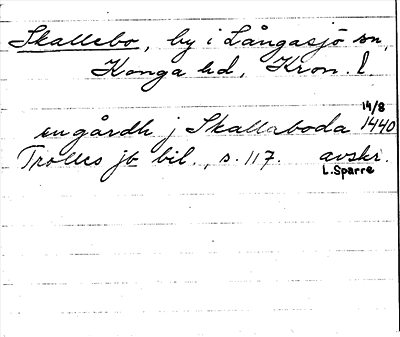 Skallebo, by i Långasjö sn,
Konga hd, Kron. l.
14/8
en gårdh j Skallaboda 1440
Trolles jb bil., s. 117. avskr.
L. Sparre